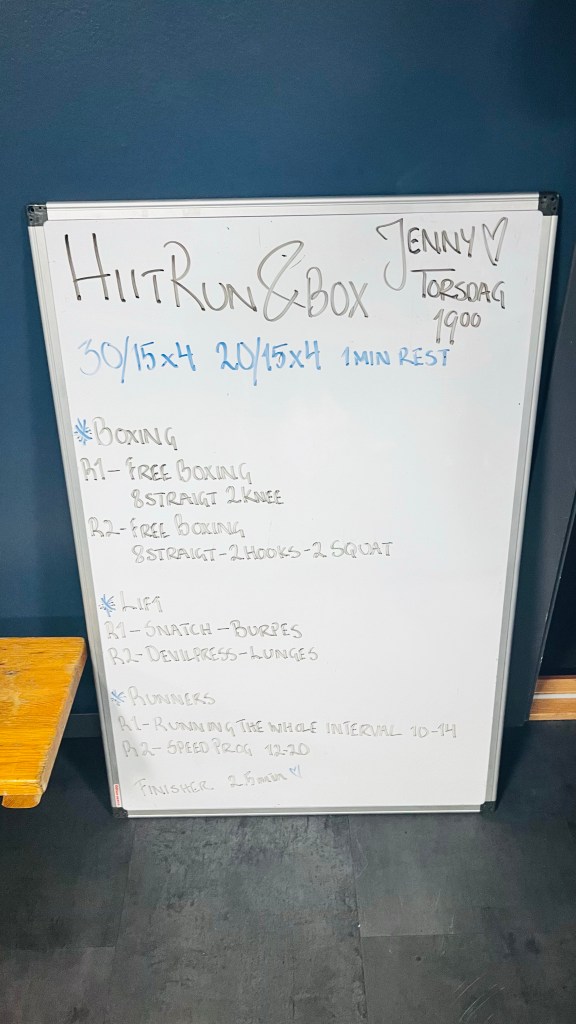 HIITRUN & BOX
JENNY♡
TORSDAG
19⁰⁰
30/15x4 20/15x4 1 MIN REST
* BOXING
R1 - FREE BOXING
8 STRAIGT 2 KNEE
R2 - FREE BOXING
8 STRAIGT - 2 HOOKS - 2 SQUAT
* LIFT
R1 - SNATCH - BURPES
R2 - DEVILPRESS - LUNGES
* RUNNERS
R1 - RUNNING THE WHOLE INTERVAL 10-14
R2 - SPEED PROG 12-20
FINISHER 2.5min ♡